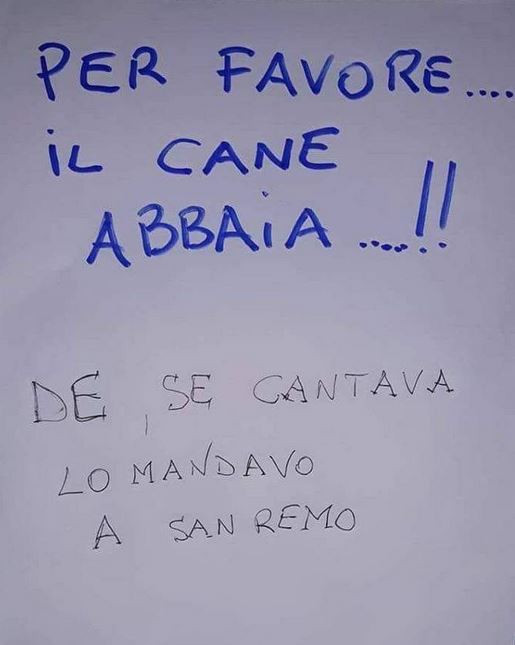 PER FAVORE....
iL CANE
ABBAiA .....!!
DE, SE CANTAVA
LO MANDAVO
A SAN REMO